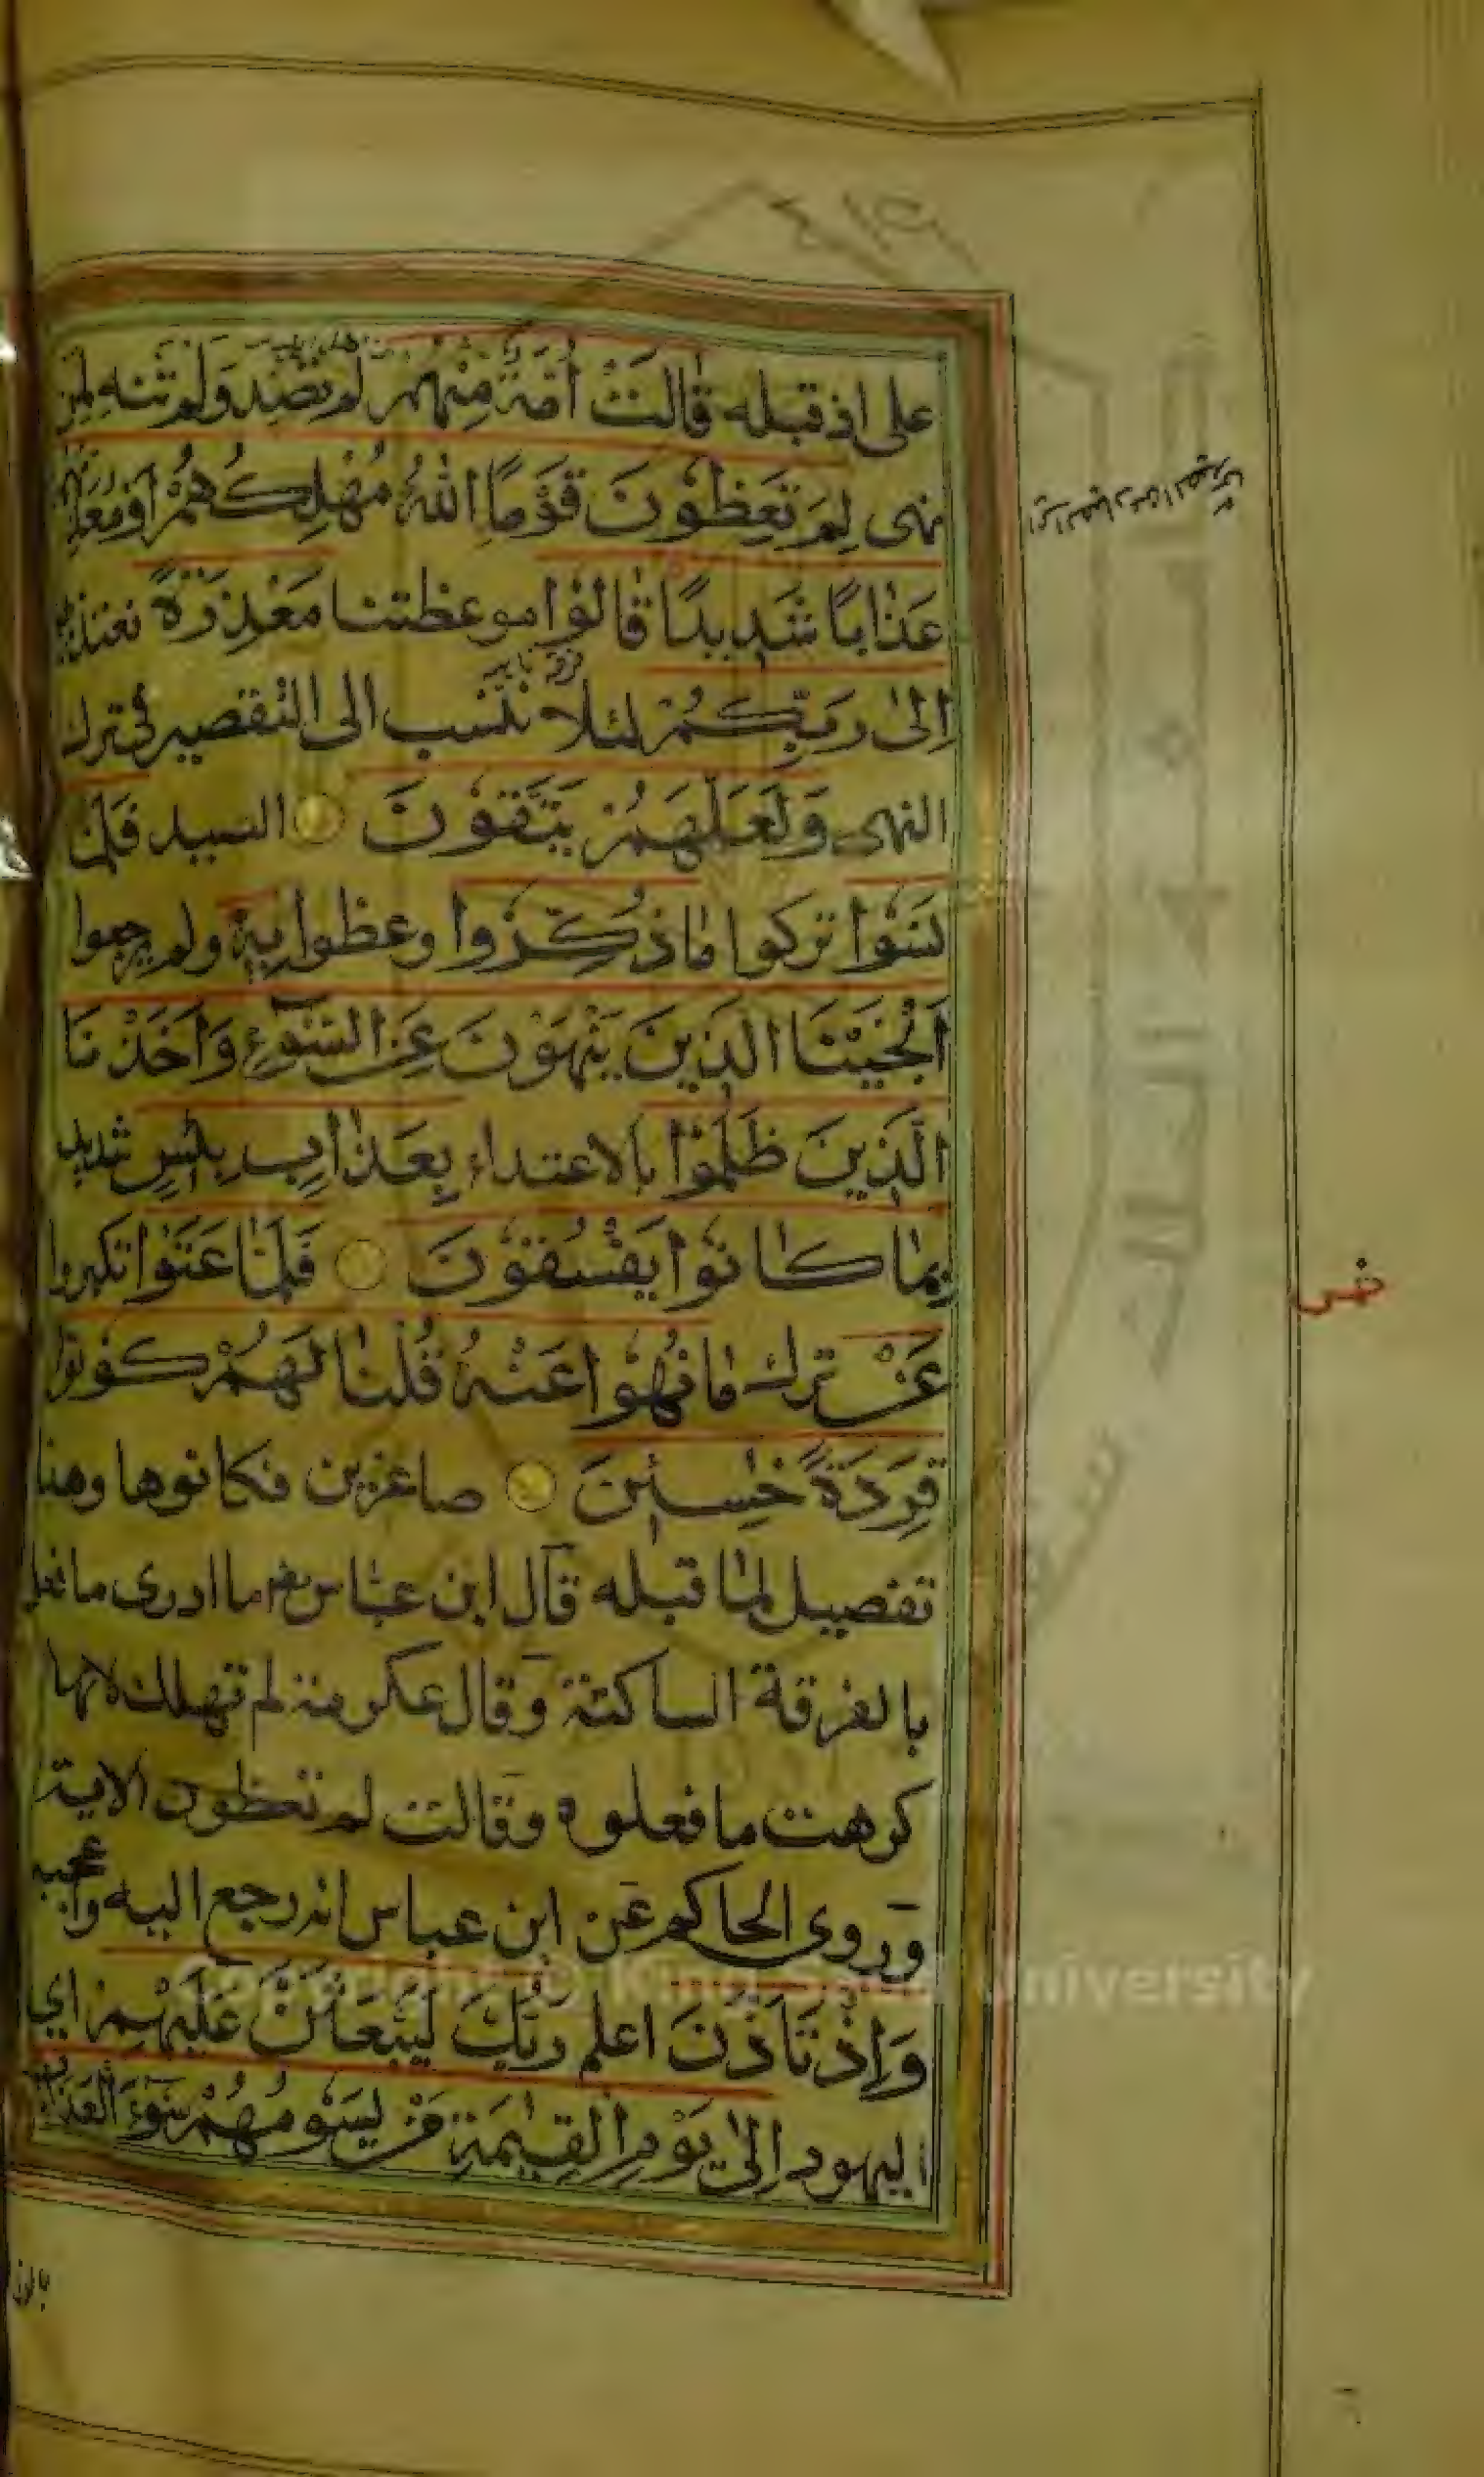 على اذ قبله قَالَتْ أُمَّةٌ مِنْهُمْ لم تصد ولم تنه لمن
نهى لِمَ تَعِظُونَ قَوْمًا اللهُ مُهْلِكُهُمْ أَوْ مُعَذِّبُهُمْ
عَذَابًا شَدِيدًا قَالُوا موعظتنا مَعْذِرَةً نعتذر بها
إِلَىٰ رَبِّكُمْ لئلا ننسب الى التقصير في ترك
النهى وَلَعَلَّهُمْ يَتَّقُونَ الصيد فَلَمَّا
نَسُوا تركوا مَا ذُكِّرُوا وعظوا بِهِ ولم يرجعوا
أَنْجَيْنَا الَّذِينَ يَنْهَوْنَ عَنِ السُّوءِ وَأَخَذْنَا
الَّذِينَ ظَلَمُوا بالاعتداء بِعَذَابٍ بَئِيسٍ شديد
بِمَا كَانُوا يَفْسُقُونَ فَلَمَّا عَتَوْا تكبروا
عَنْ ترك مَا نُهُوا عَنْهُ قُلْنَا لَهُمْ كُونُوا
قِرَدَةً خَاسِئِينَ صاغرين فكانوها وهذا
تفصيل لما قبله قال ابن عباس رضم ما ادرى ما فعل
بالفرقة الساكتة وقال عكرمة لم تهلك لانها
كرهت ما فعلوه وقالت لم تعظون الاية
وروى الحاكم عن ابن عباس انه رجع اليه واعجبه
وَإِذْ تَأَذَّنَ اعلم رَبُّكَ لَيَبْعَثَنَّ عَلَيْهِمْ اي
اليهود إِلَىٰ يَوْمِ الْقِيٰمَةِ مَنْ يَسُومُهُمْ سُوءَ الْعَذَابِ
Copyright © King Saud University